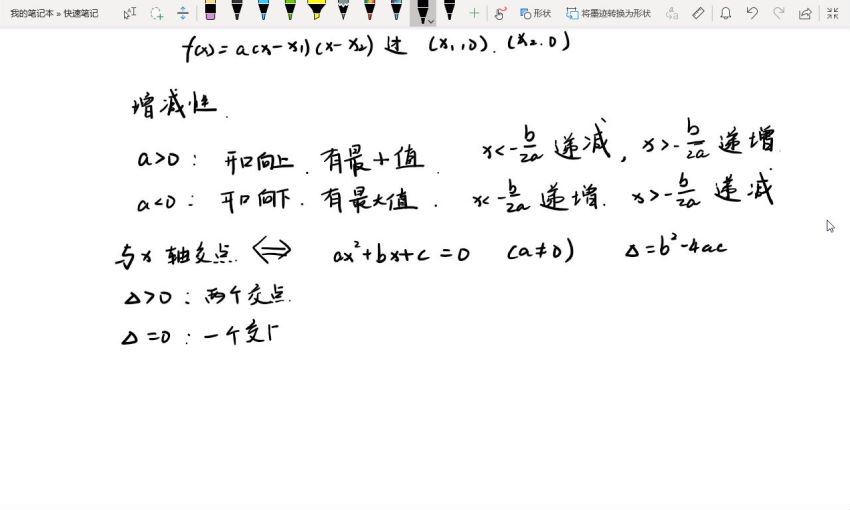 我的笔记本 » 快速笔记 形状 将墨迹转换为形状
f(x) = a(x-x₁)(x-x₂) 过 (x₁,0). (x₂.0)
增减性.
a>0 : 开口向上. 有最小值. x<-b/2a 递减, x>-b/2a 递增
a<0 : 开口向下. 有最大值. x<-b/2a 递增. x>-b/2a 递减
与x轴交点. ⟺ ax²+bx+c=0 (a≠0) Δ=b²-4ac
Δ>0 : 两个交点.
Δ=0 : 一个交